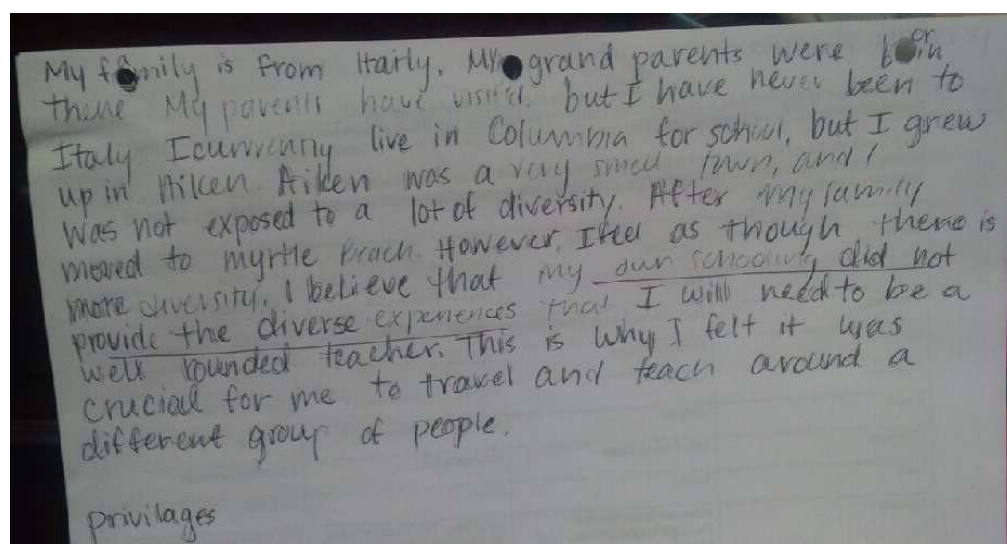 My family is from Itaily. My grand parents were born
there My parents have visited. but I have never been to
Italy I currenny live in Columbia for school, but I grew
up in Aiken. Aiken was a very small town, and I
was not exposed to a lot of diversity. After my family
moved to myrtle Beach. However, I feel as though there is
more diversity. I believe that my own schooling did not
provide the diverse experiences that I will need to be a
well rounded teacher. This is why I felt it was
crucial for me to travel and teach around a
different group of people.
privilages